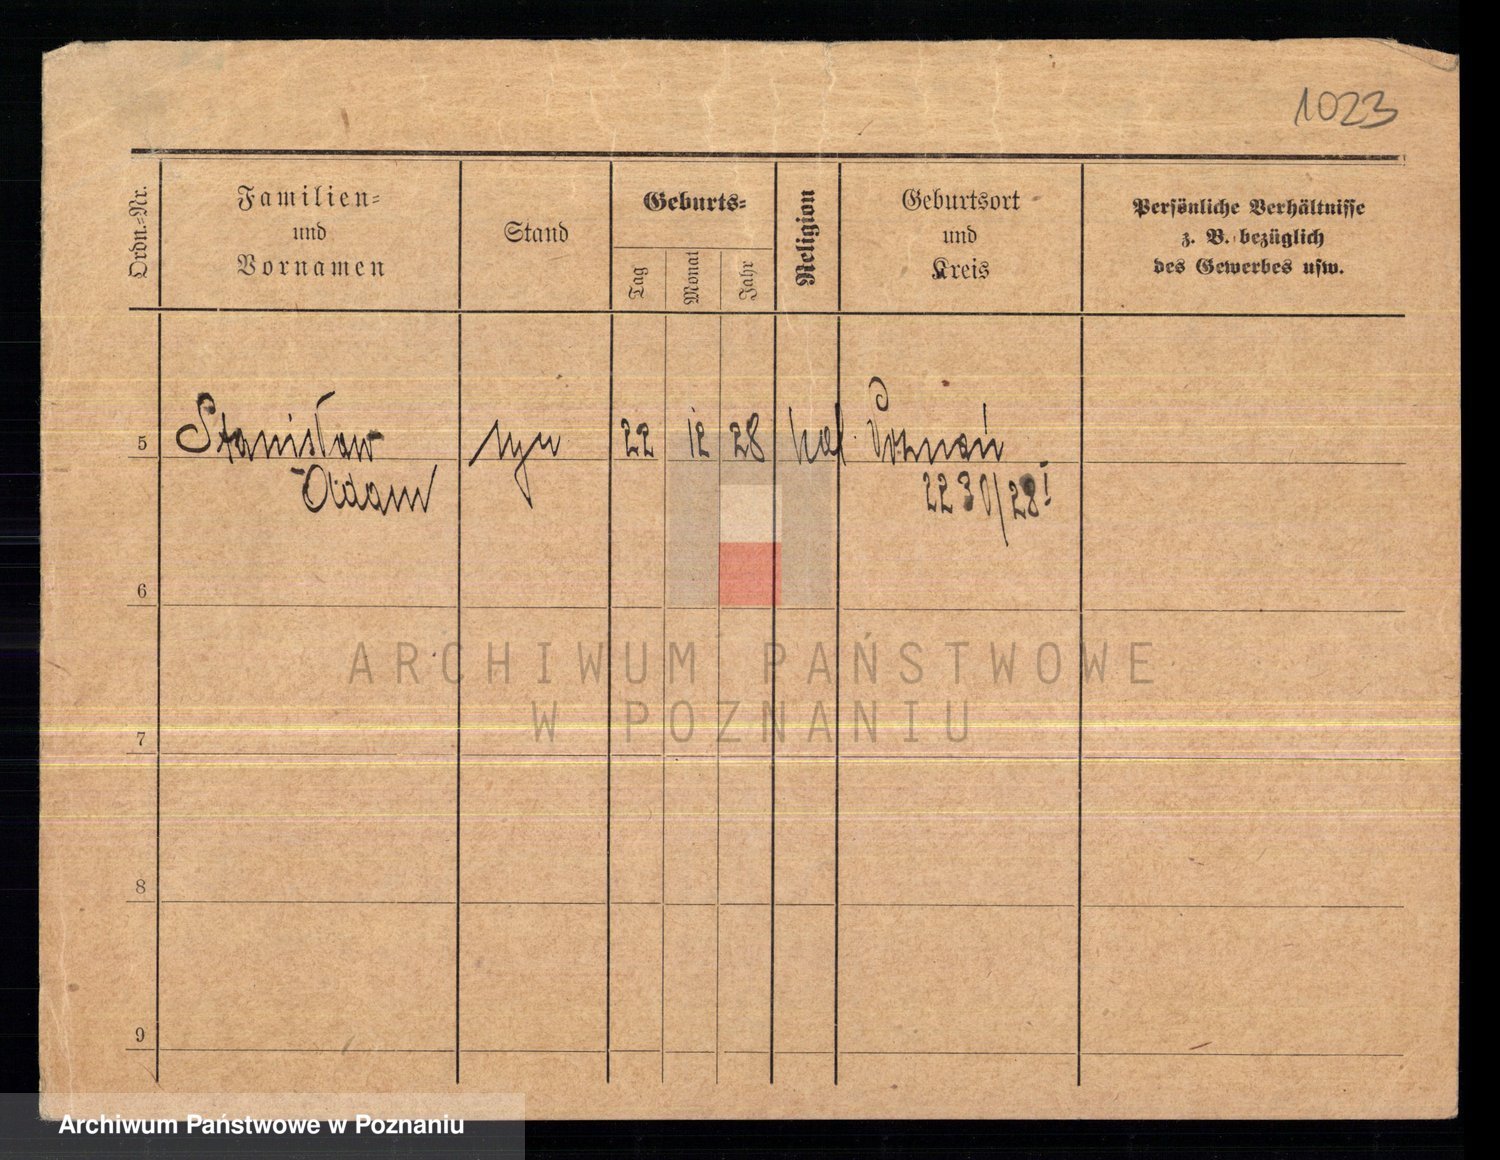 1023
Ordn.=Nr.
Familien=
und
Vornamen
Stand
Geburts=
Tag
Monat
Jahr
Religion
Geburtsort
und
Kreis
Persönliche Verhältnisse
z. B. bezüglich
des Gewerbes usw.
5
Stanisław
Adam
syn
22
12
28
kat.
Poznań
2230/28 I
6
ARCHIWUM PAŃSTWOWE
W POZNANIU
7
8
9
Archiwum Państwowe w Poznaniu